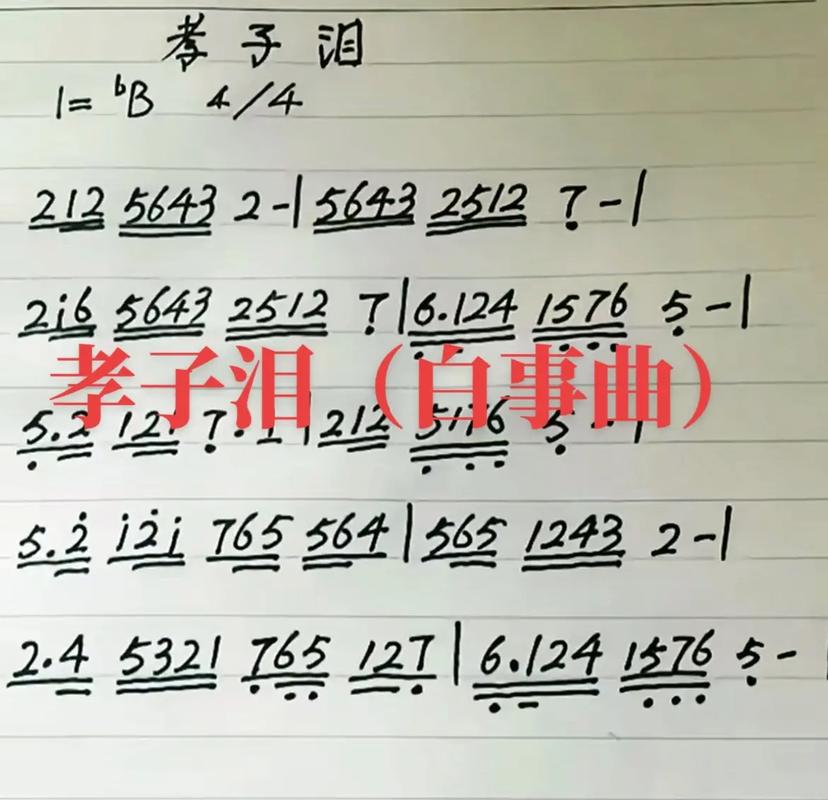 孝子泪
1=ᵇB 4/4
212 5643 2-|5643 2512 7̣-|
2i6 5643 2512 7̣|6.124 1576 5̣-|
孝子泪（白事曲）
5.2 121 7̣. 1|212 5176 5̣--|
5.2̇ i2̇i 765 564|565 1243 2-|
2.4 5321 765 127|6.124 1576 5̣-